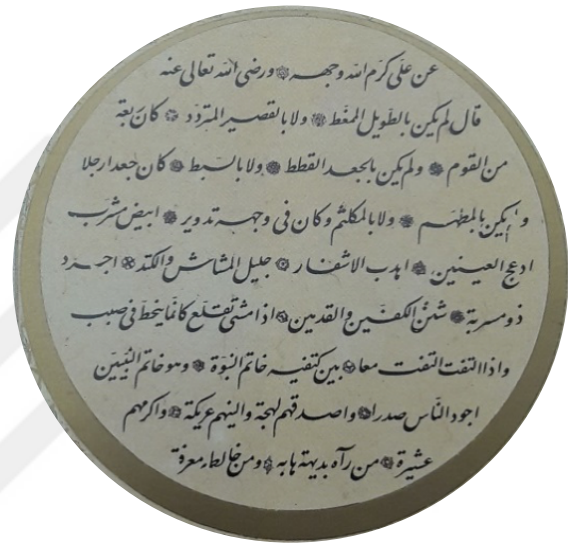 عن على كرّم الله وجهه ورضى الله تعالى عنه
قال لم يكن بالطويل الممغط ولا بالقصير المتردد كان ربعة
من القوم ولم يكن بالجعد القطط ولا بالسبط كان جعدا رجلا
ولم يكن بالمطهم ولا بالمكلثم وكان فى وجهه تدوير ابيض مشرب
ادعج العينين اهدب الاشفار جليل المشاش والكتد اجرد
ذو مسربة شثن الكفين والقدمين اذا مشى تقلع كانما ينحط فى صبب
واذا التفت التفت معا بين كتفيه خاتم النبوة وهو خاتم النبيين
اجود الناس صدرا واصدقهم لهجة والينهم عريكة واكرمهم
عشيرة من رآه بديهة هابه ومن خالطه معرفة